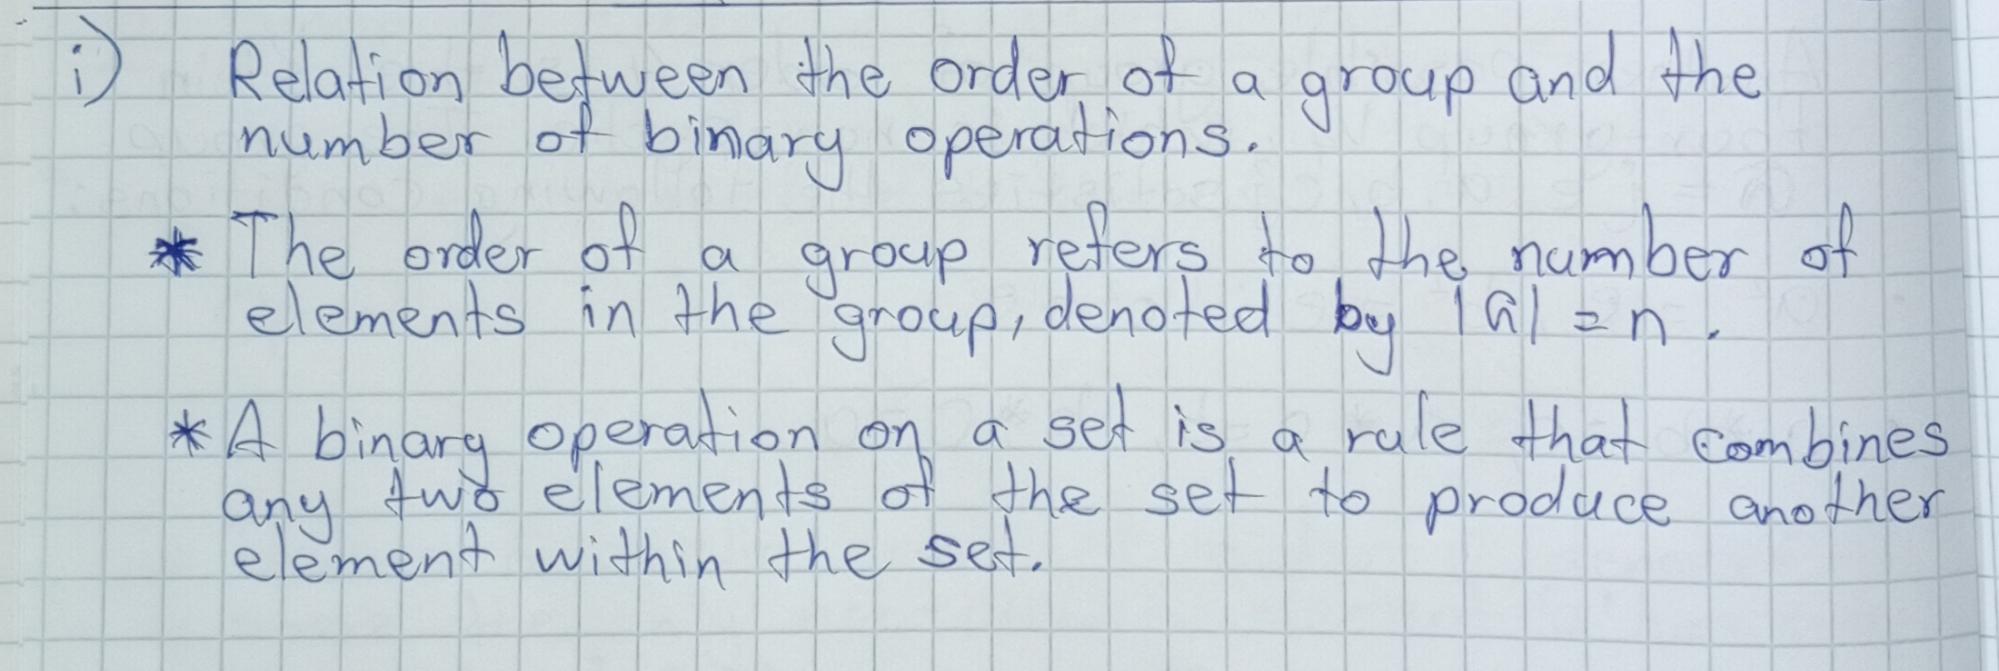 i) Relation between the order of a group and the
number of binary operations.
* The order of a group refers to the number of
elements in the group, denoted by |G| = n.
* A binary operation on a set is a rule that combines
any two elements of the set to produce another
element within the set.